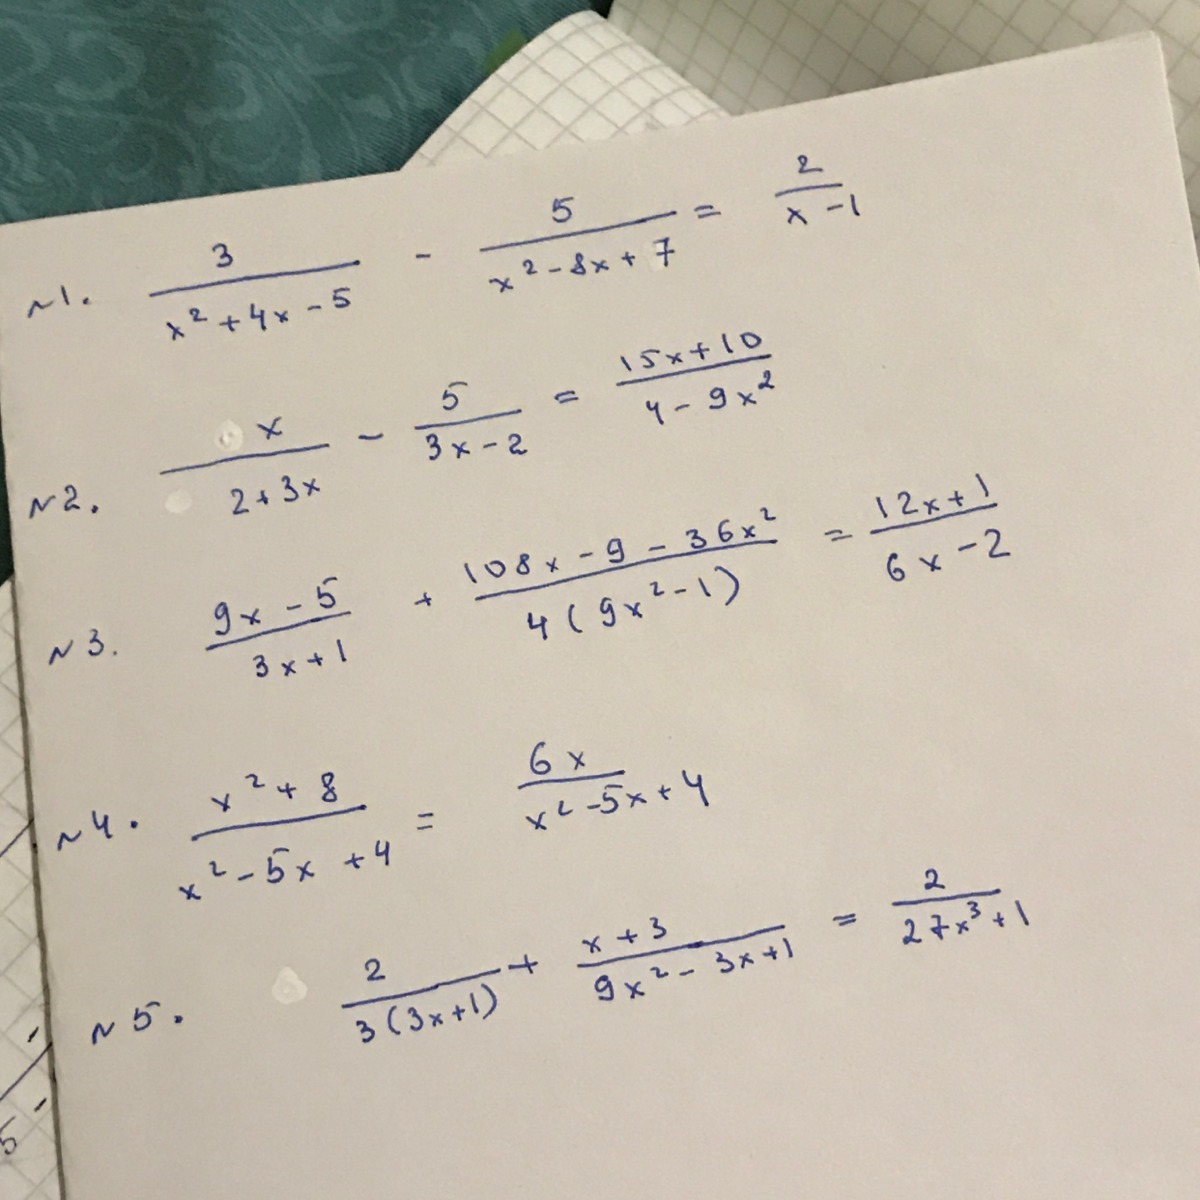 N1. 3/(x² + 4x - 5) - 5/(x² - 8x + 7) = 2/(x - 1)
N2. x/(2 + 3x) - 5/(3x - 2) = (15x + 10)/(4 - 9x²)
N3. (9x - 5)/(3x + 1) + (108x - 9 - 36x²)/(4(9x² - 1)) = (12x + 1)/(6x - 2)
N4. (x² + 8)/(x² - 5x + 4) = 6x/(x² - 5x + 4)
N5. 2/(3(3x + 1)) + (x + 3)/(9x² - 3x + 1) = 2/(27x³ + 1)
5 -